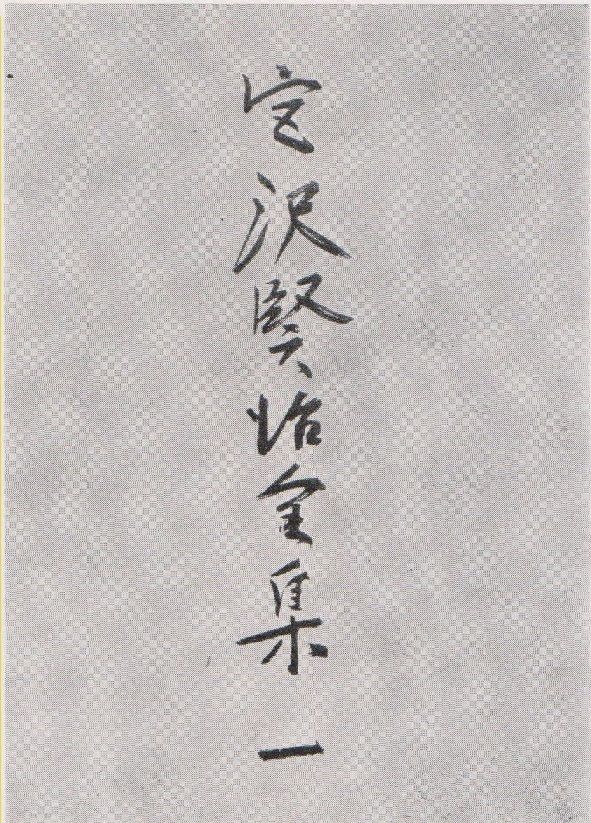 宮沢賢治全集 一